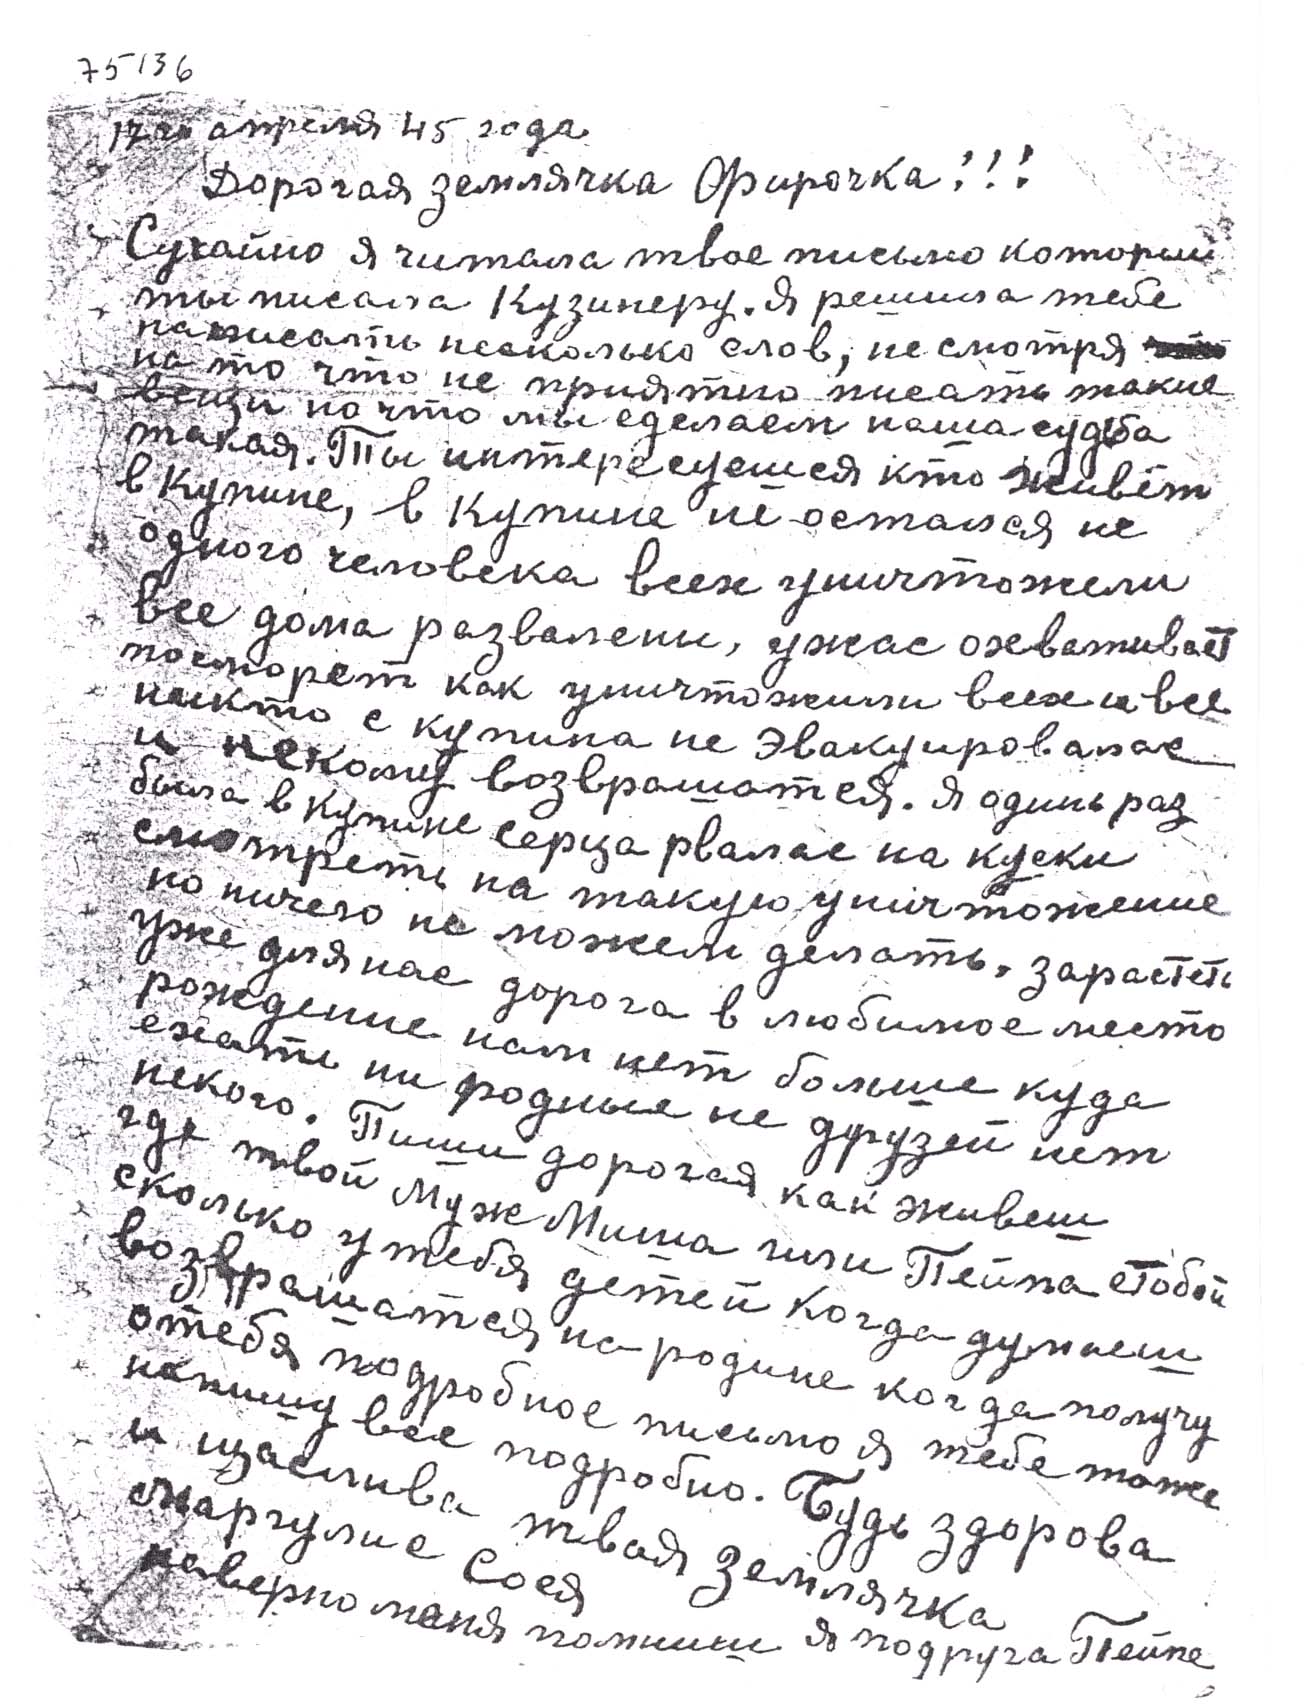 75136
17го апреля 45 года
Дорогая землячка Фирочка!!!
Сучайно я читала твое письмо который
ты писала Кузинеру. Я решила тебе
написать несколько слов, не смотря
на то что не приятно писать такие
вещи но что мы сделаем наша судьба
такая. Ты интересуешся кто живёт
в Купине, в Купине не остался не
одного человека всех уничтожели
все дома развалени, ужас охватывает
посморет как уничтожили всех и все
некто с купина не эвакуировалас
и некому возврашатся. Я одинь раз
была в Купине серца рвалас на куски
смотреть на такую уничтожение
но ничего не можем делать. зарастеть
уже для нас дорога в любимое место
рождение нам нет больше куда
ехать ни родные не друзей нет
некого. Пиши дорогая как живеш
где твой муж Миша или Пейпа стобой
сколько у тебя детей когда думаеш
возврашатся на родине когда получу
отебя подробное письмо я тебе тоже
напишу все подробно. Будь здорова
и щаслива твая землячка
Маргулис Сося
наверно маня помниш я подруга Пейпе